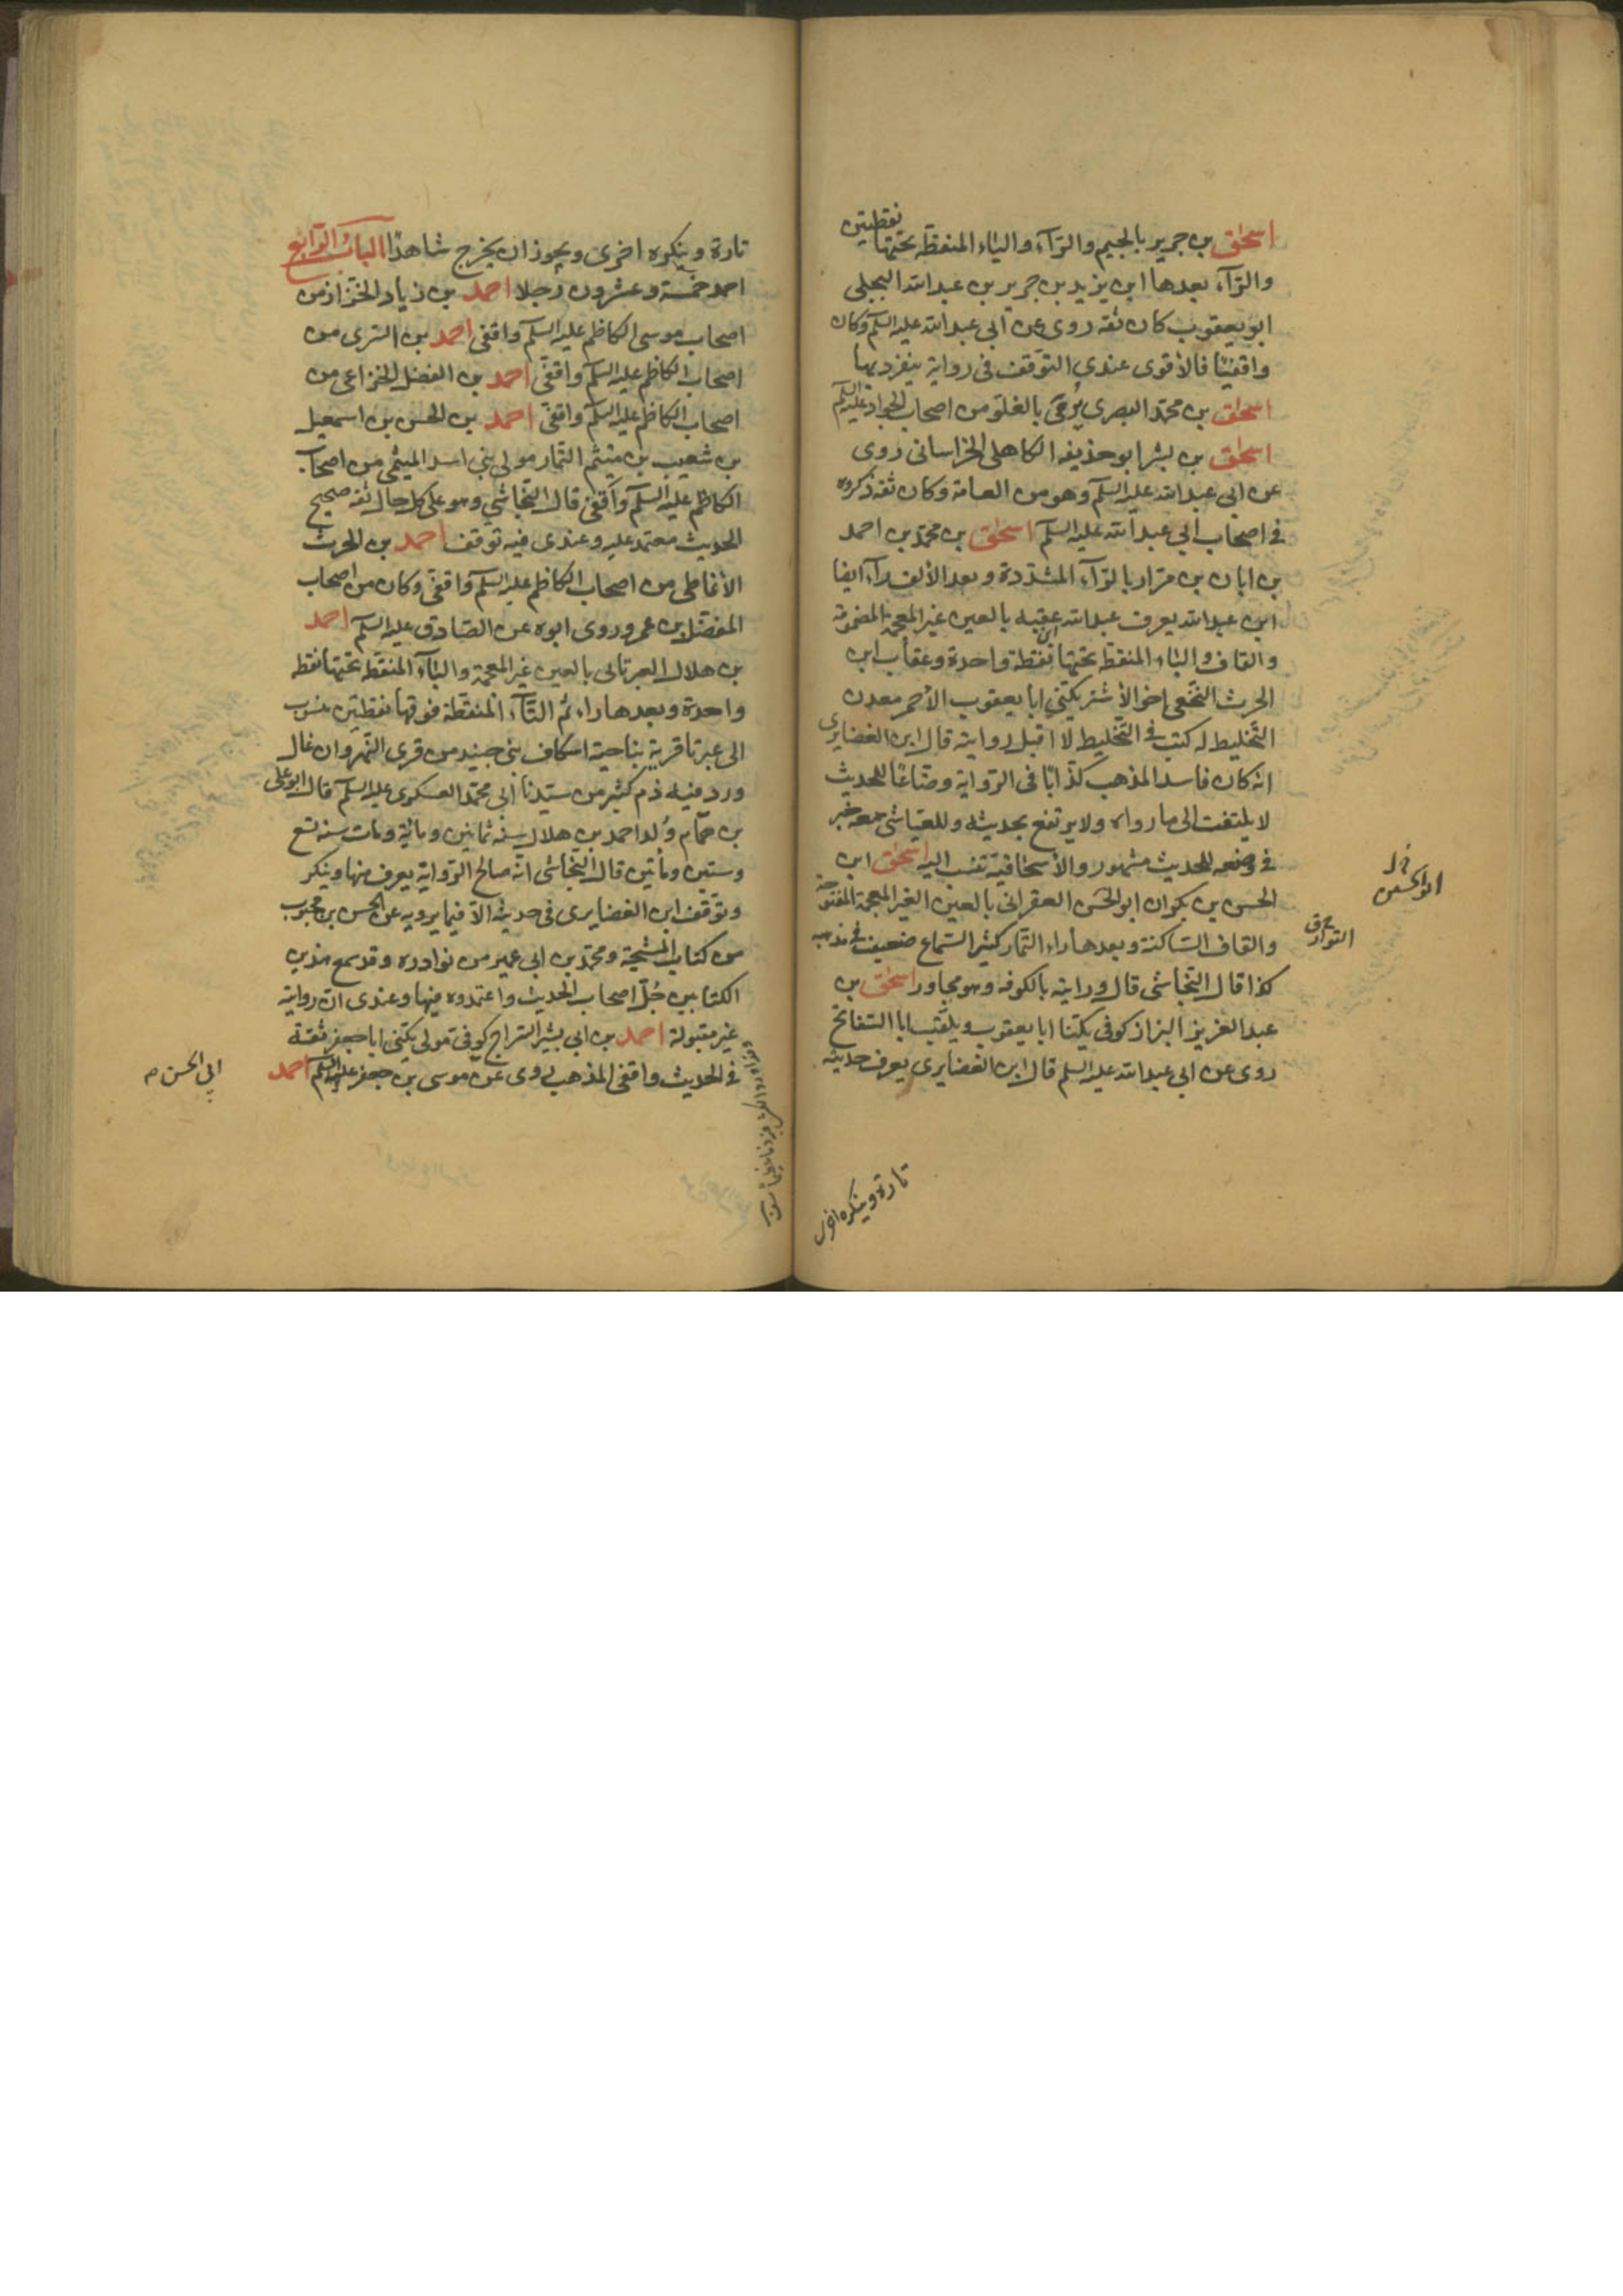 اسحق بن جرير بالجيم والرآء والياء المنقطة تحتها نقطتين
والرآء بعدها ابن يزيد بن جرير بن عبد الله البجلى
ابو يعقوب كان ثقه روى عن ابي عبد الله عليه السلم وكان
واقفيا فالأقوى عندي التوقف فى رواية ينفرد بها
اسحق بن محمد البصرى يرمى بالغلو من اصحاب الجواد عليه السلم
اسحق بن بشر ابو حذيفه الكاهلى الخراسانى روى
عن ابى عبد الله عليه السلم وهو من العامة وكان ثقه ذكروه
فى اصحاب ابي عبد الله عليه السلم اسحق بن محمد بن احمد
بن ابان بن مرار بالرآء المشددة وبعد الألف رآء ايضا
ابن عبد الله يعرف عبد الله عقبه بالعين غير المعجمة المضمومة
والقاف والباء المنقطه تحتها نقطة واحدة وعقاب ابن
الحرث النخعى اخو الأشتر يكتنى ابا يعقوب الأحمر معدن
التخليط له كتب فى التخليط لا اقبل روايته قال ابن الغضايرى
انه كان فاسد المذهب كذابا فى الرواية وضاعا للحديث
لا يلتفت الى ما رواه ولا يرتفع بحديثه وللعياشى معه خبر
فى وضعه للحديث مشهور والأسحاقية تنسب اليه اسحق ابن
الحسن بن بكران ابو الحسن العقرانى بالعين الغير المعجمة المفتوحة
والقاف الساكنة وبعدها راء التمار كثير السماع ضعيف فى مذهبه
كذا قال النجاشى قال ورايته بالكوفه وهو مجاور اسحق بن
عبد العزيز البزاز كوفى يكتنا ابا يعقوب ويلقب ابا السفاتج
روى عن ابى عبد الله عليه السلم قال ابن الغضايرى يعرف حديثه
ابو الحسين
تارة وينكره اخرى
تارة وينكره اخرى ويجوز ان يخرج شاهدا الباب الرابع
احمد خمسة وعشرون رجلا احمد بن زياد الخزاز من
اصحاب موسى الكاظم عليه السلم واقفى احمد بن السرى من
اصحاب الكاظم عليه السلم واقفى احمد بن الفضل الخزاعى من
اصحاب الكاظم عليه السلم واقفى احمد بن الحسن بن اسمعيل
بن شعيب بن ميثم التمار مولى بني اسد الميثمى من اصحاب
الكاظم عليه السلم واقفى قال النجاشي وهو على كل حال ثقه صحيح
الحديث معتمد عليه وعندى فيه توقف احمد بن الحرث
الأنماطى من اصحاب الكاظم عليه السلم واقفى وكان من اصحاب
المفضل بن عمر وروى ابوه عن الصادق عليه السلم احمد
بن هلال العبرتايى بالعين غير المعجمة والبآء المنقطه تحتها نقطه
واحدة وبعدها راء ثم التآء المنقطة فوقها نقطتين منسوب
الى عبرتا قرية بناحية اسكاف بنى جنيد من قرى النهروان غال
ورد فيه ذم كثير من سيدنا ابى محمد العسكرى عليه السلم قال ابو على
بن همام ولد احمد بن هلال سنه ثمانين ومائة ومات سنه تسع
وستين ومأتين قال النجاشى انه صالح الرواية يعرف منها وينكر
وتوقف ابن الغضايرى فى حديثه الا فيما يرويه عن الحسن بن محبوب
من كتاب المشيخة ومحمد بن ابى عمير من نوادره وقد سمع هذين
الكتابين جل اصحاب الحديث واعتمدوه فيها وعندى ان روايته
غير مقبولة احمد بن ابى بشر السراج كوفى مولى يكنى ابا جعفر ثقة
فى الحديث واقفى المذهب روى عن موسى بن جعفر عليه السلم احمد
ابى الحسن م